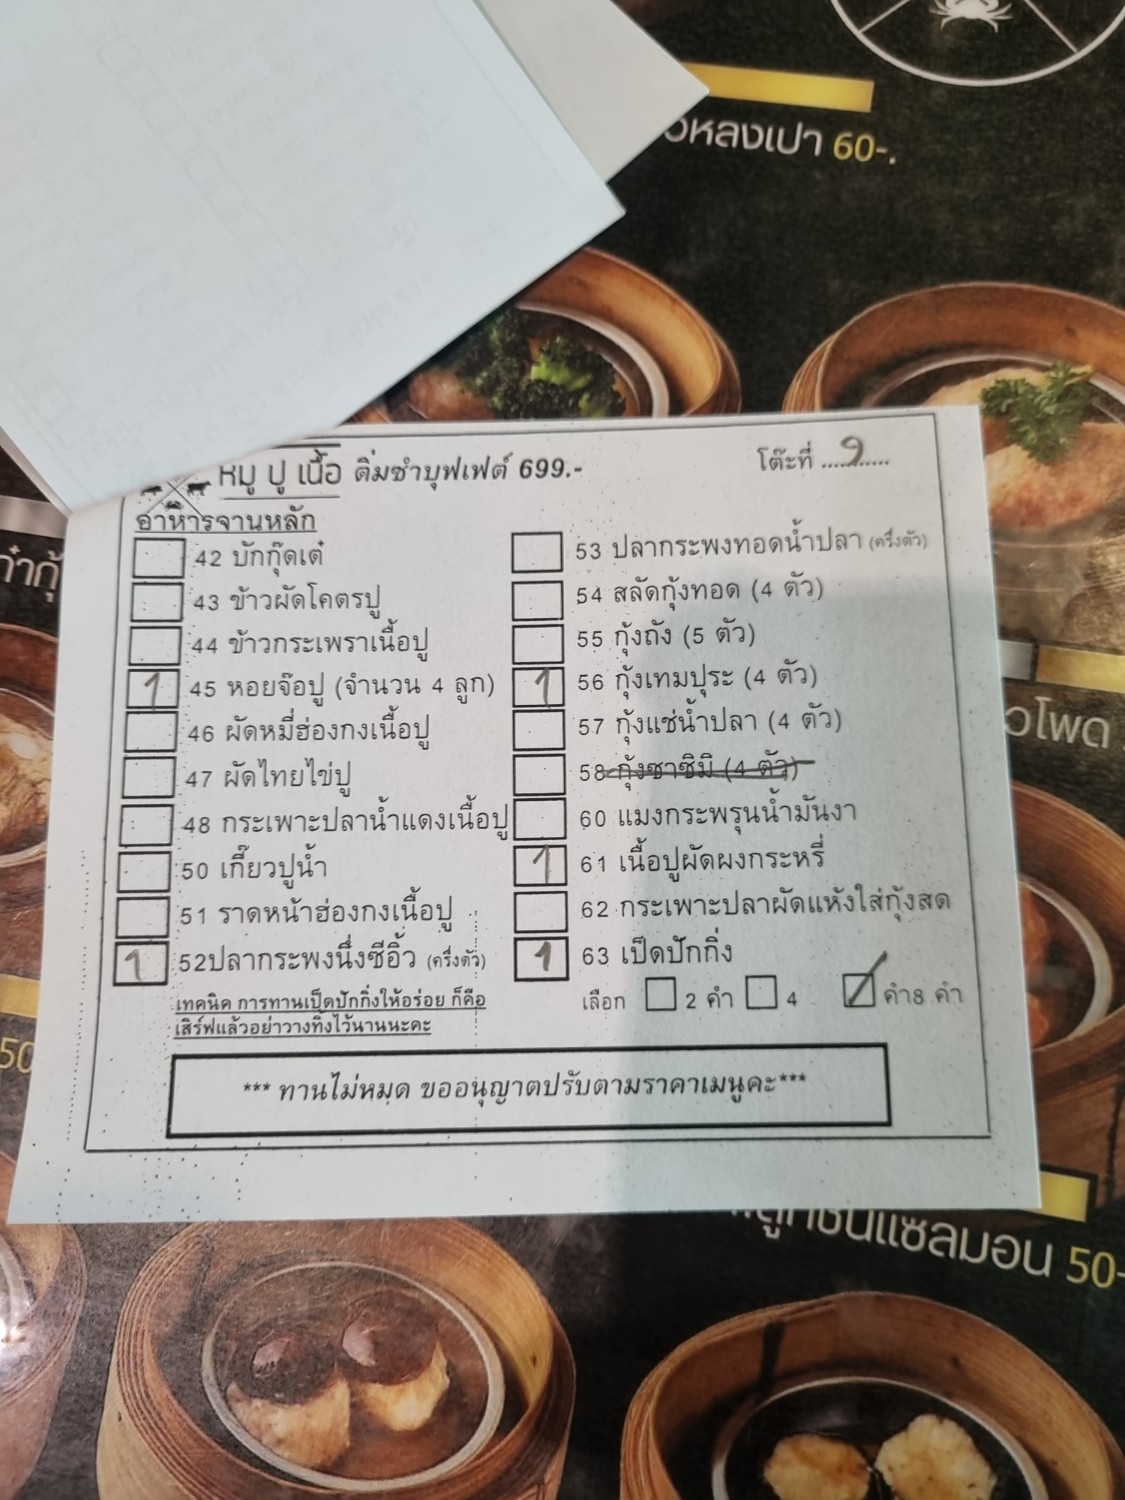 วหลงเปา 60-.
หมู ปู เนื้อ ติ่มซำบุฟเฟต์ 699.-
โต๊ะที่ ....9......
อาหารจานหลัก
42 บักกุ๊ดเต๋
43 ข้าวผัดโคตรปู
44 ข้าวกระเพราเนื้อปู
1 45 หอยจ๊อปู (จำนวน 4 ลูก)
46 ผัดหมี่ฮ่องกงเนื้อปู
47 ผัดไทยไข่ปู
48 กระเพาะปลาน้ำแดงเนื้อปู
50 เกี๊ยวปูน้ำ
51 ราดหน้าฮ่องกงเนื้อปู
1 52ปลากระพงนึ่งซีอิ้ว (ครึ่งตัว)
เทคนิค การทานเป็ดปักกิ่งให้อร่อย ก็คือ
เสิร์ฟแล้วอย่าวางทิ้งไว้นานนะคะ
53 ปลากระพงทอดน้ำปลา (ครึ่งตัว)
54 สลัดกุ้งทอด (4 ตัว)
55 กุ้งถัง (5 ตัว)
1 56 กุ้งเทมปุระ (4 ตัว)
57 กุ้งแช่น้ำปลา (4 ตัว)
58 กุ้งซาซิมิ (4 ตัว)
60 แมงกระพรุนน้ำมันงา
1 61 เนื้อปูผัดผงกระหรี่
62 กระเพาะปลาผัดแห้งใส่กุ้งสด
1 63 เป็ดปักกิ่ง
เลือก 2 คำ 4 คำ8 คำ
*** ทานไม่หมด ขออนุญาตปรับตามราคาเมนูคะ***
วโพด
50
ลูกชิ้นแซลมอน 50-